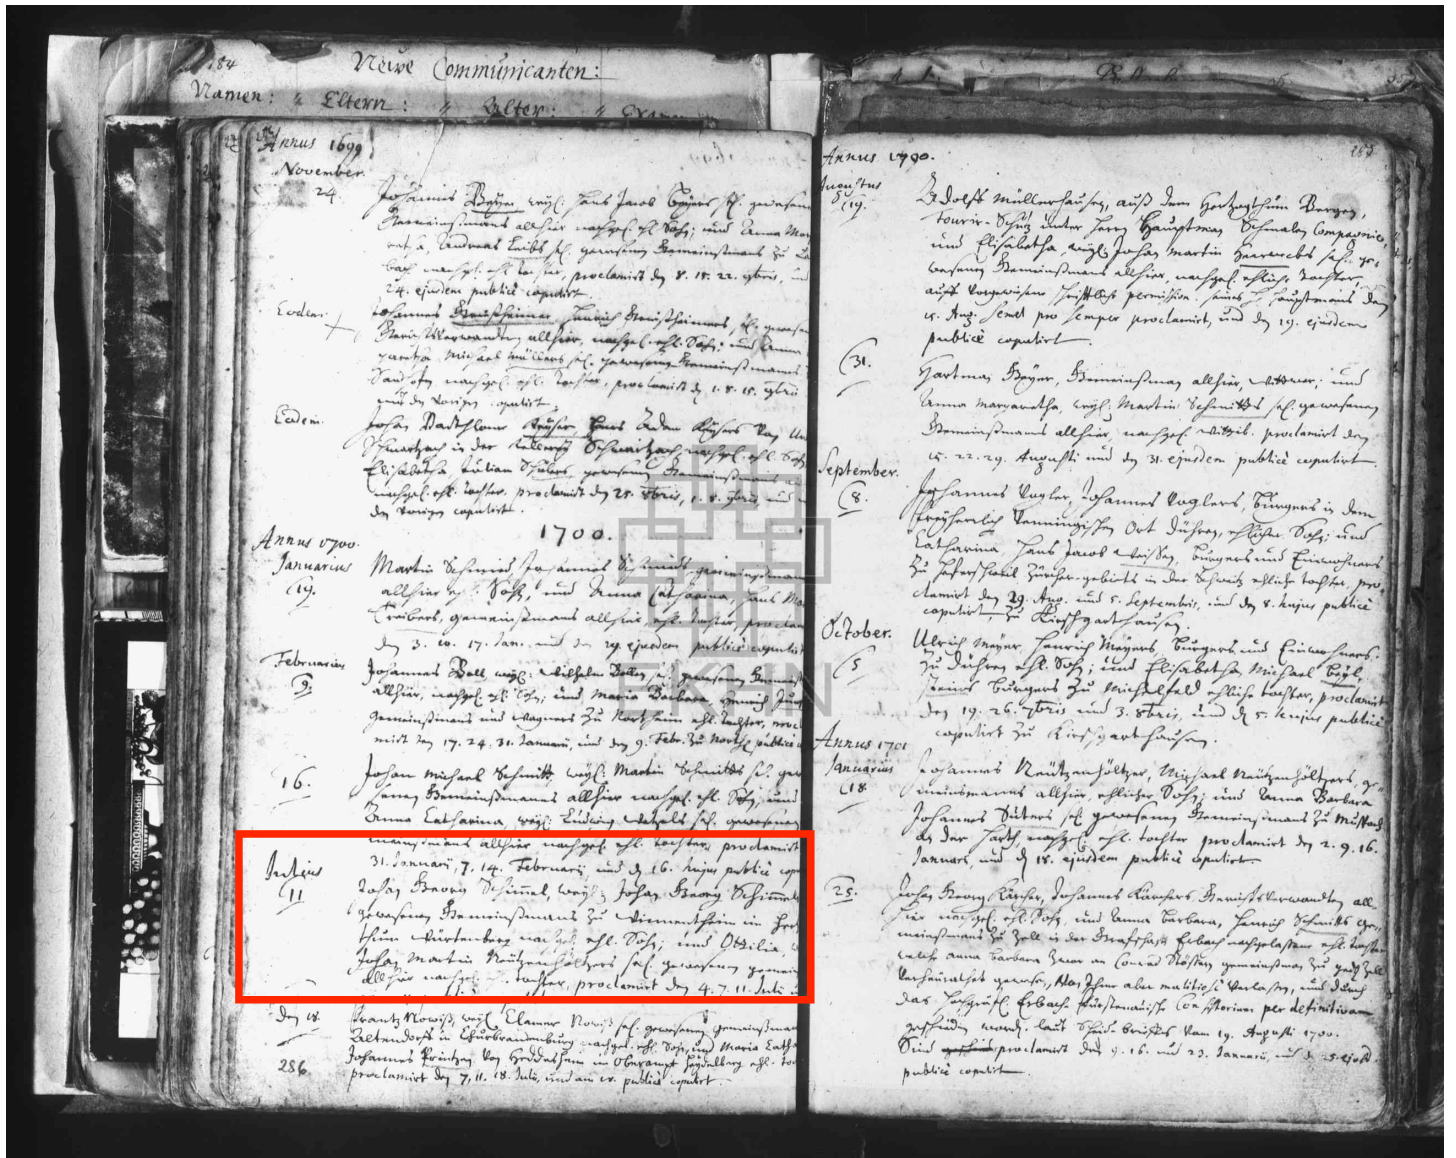 184 Neüe Communicanten:
Namen: Eltern: Alter: Examen
Annus 1699
November.
24. Johannes Beyer, weyl: Hans Jacob Beyers sel. gewesenen
Gemeinßmans allhier nachgel. ehl. Sohn; und Anna Mar
Andreas sel. gewesenen Gemeinßmans zu
bach nachgel. ehl. tochter, proclamirt den 8. 15. 22. 9bris, und
24. ejusdem publicè copulirt.
Eodem. Johannes Henrich sel. gewesenen
Gerichtsverwandten allhier, nachgel. ehl. Sohn; und Anna
garetha Michael Müllers sel. gewesenen Gemeinßmanns
Sandhofen nachgel. ehl. tochter, proclamirt den 1. 8. 15. 9bris
und den vorigen copulirt.
Eodem. Johan Barthlome Keyser Hans Adam Keysers von
Schwartzach in der Kellerey Schwartzach nachgel. ehl. Sohn,
Elisabetha gewesenen Gemeinßmans
nachgel. ehl. tochter, proclamirt den 25. 8bris, 1. 8. 9bris, und
den vorigen copulirt.
1700.
Annus 1700.
Januarius
19. Martin Schmid, Johannes Schmids gemeinßmans
allhier ehl. Sohn, und Anna Catharina, Hans
gemeinßmans allhier, ehl. tochter, proclam
den 3. 10. 17. Jan. und den 19. ejusdem publicè copulirt
Februarius
9. Johannes Boll, weyl: Wilhelm Bollen sel. gewesenen Gemeinß
allhier, nachgel. ehl. Sohn; und Maria Barbara, Henrich
gemeinßmans und Wagners zu Northeim ehl. tochter, procl
mirt den 17. 24. 31. Januarii, und den 9. Febr. zu Northeim publicè
16. Johan Michael Schmitt, weyl: Martin Schmitts sel. gew
senen Gemeinßmannes allhier nachgel. ehl. Sohn; und
Anna Catharina, weyl: Ludwig Wetzels sel. gewesenen
meinßmans allhier nachgel. ehl. tochter, proclamirt
31. Januarii, 7. 14. Februarii, und den 16. hujus publicè copu
Julius
11 Johan Georg Schimmel, weyl: Johan Georg Schimmels
gewesenen Gemeinßmans zu Wimmentheim im Hertzog
thum Würtenberg nachgel. ehl. Sohn; und Ottilia,
Johan Martin Neützenhöltzers sel. gewesenen gemein
allhier nachgel. ehl. tochter, proclamirt den 4. 7. 11. Julii
den 18. Frantz Nowiß, weyl. Nowiß sel. gewesenen gemeinßman
Altendorff in Churbrandenburg nachgel. ehl. Sohn, und Maria Catha
Johannes Printzen von Heddesheim in Oberampt Heydelberg ehl. toch
proclamirt den 7. 11. 18. Julii, und am 18. publicè copulirt.
286
285
Annus 1700.
Augustus
19. Adolff Müllerhausen, auß dem Hertzogthum Bergen,
Schütz unter Herrn Hauptman Schmalen Compagnie,
und Elisabetha, weyl: Johan Martin sel. ge-
wesenen Gemeinßmans allhier, nachgel. ehliche tochter,
auff vorgewisene schrifftliche permission seines H. Hauptmans den
15. Aug. semel pro semper proclamirt, und den 19. ejusdem
publicè copulirt.
31. Hartman Beyer, Gemeinßman allhier, Wittwer; und
Anna Margaretha, weyl: Martin Schmitts sel. gewesenen
Gemeinßmanns allhier, nachgel. Wittib. proclamirt den
15. 22. 29. Augusti und den 31. ejusdem publicè copulirt.
September.
8. Johannes Vogler, Johannes Voglers, Burgers in dem
freyherrlich Venningischen Ort Dühren, ehlicher Sohn; und
Catharina, Hans Jacob Weissen, burgers und Einwohners
zu Zürcher-gebiets in der Schweitz ehliche tochter, pro-
clamirt den 29. Aug. und 5. Septembris, und den 8. hujus publicè
copulirt, zu Kirschgarthausen.
October.
5 Ulrich Meyer, Henrich Meyers, burgers und Einwohners
zu Dühren ehl. Sohn; und Elisabetha, Michael Beyl-
steins burgers zu Michelfeld ehliche tochter, proclamirt
den 19. 26. 7bris und 3. 8bris, und den 5. hujus publicè
copulirt zu Kirschgarthausen.
Annus 1701
Januarius
18. Johannes Neützenhöltzer, Michael Neützenhöltzers, ge-
meinsmannes allhier, ehlicher Sohn; und Anna Barbara
Johannes Suters sel. gewesenen Gemeinßmans zu Mußbach
an der Harth, nachgel. ehl. tochter proclamirt den 2. 9. 16.
Januarii, und den 18. ejusdem publicè copulirt.
25. Johan Georg Kärcher, Johannes Kärchers Gerichtsverwandten all-
hier nachgel. ehl. Sohn, und Anna Barbara, Henrich Schmitts ge-
meinßmans zu Zell in der Graffschafft Erbach nachgelassene ehl. tochter
welche Anna Barbara zwar an Conrad gemeinßman zu Zell
verheurathet gewesen, von Ihme aber malitiosè verlassen, und durch
das Hochgräffl. Erbach-Fürstenauische Consistorium per definitivam
geschieden worden, laut Scheidbrieffes vom 19. Augusti 1700.
Sind proclamirt den 9. 16. und 23. Januarii, und den 25. ejusd.
publicè copulirt.